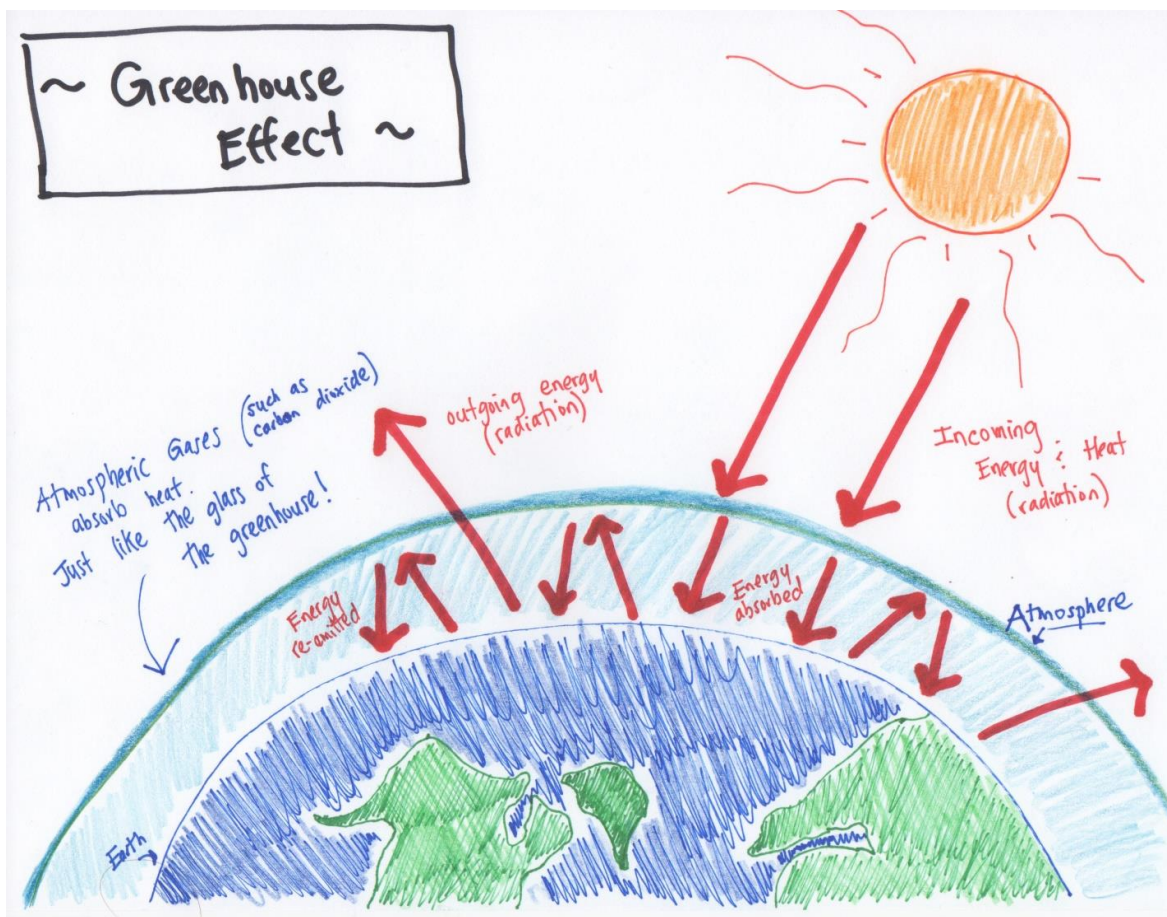 ~ Greenhouse
Effect ~
Atmospheric Gases (such as
carbon dioxide)
absorb heat.
Just like the glass of
the greenhouse!
outgoing energy
(radiation)
Incoming
Energy & Heat
(radiation)
Energy
re-emitted
Energy
absorbed
Atmosphere
Earth